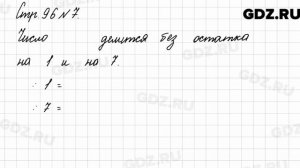 GDZ.RU
Стр 96 №7
Число делится без остатка
на 1 и на 7.
: 1 =
: 7 =
GDZ.RU
GDZ.RU